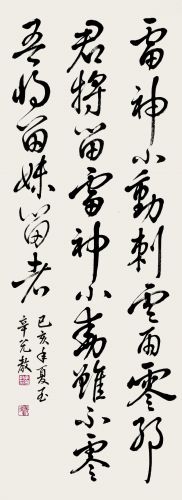 雷神小動刺云雨零耶
君將留雷神小動雖不零
吾將留妹留者
己亥年夏至
辛教